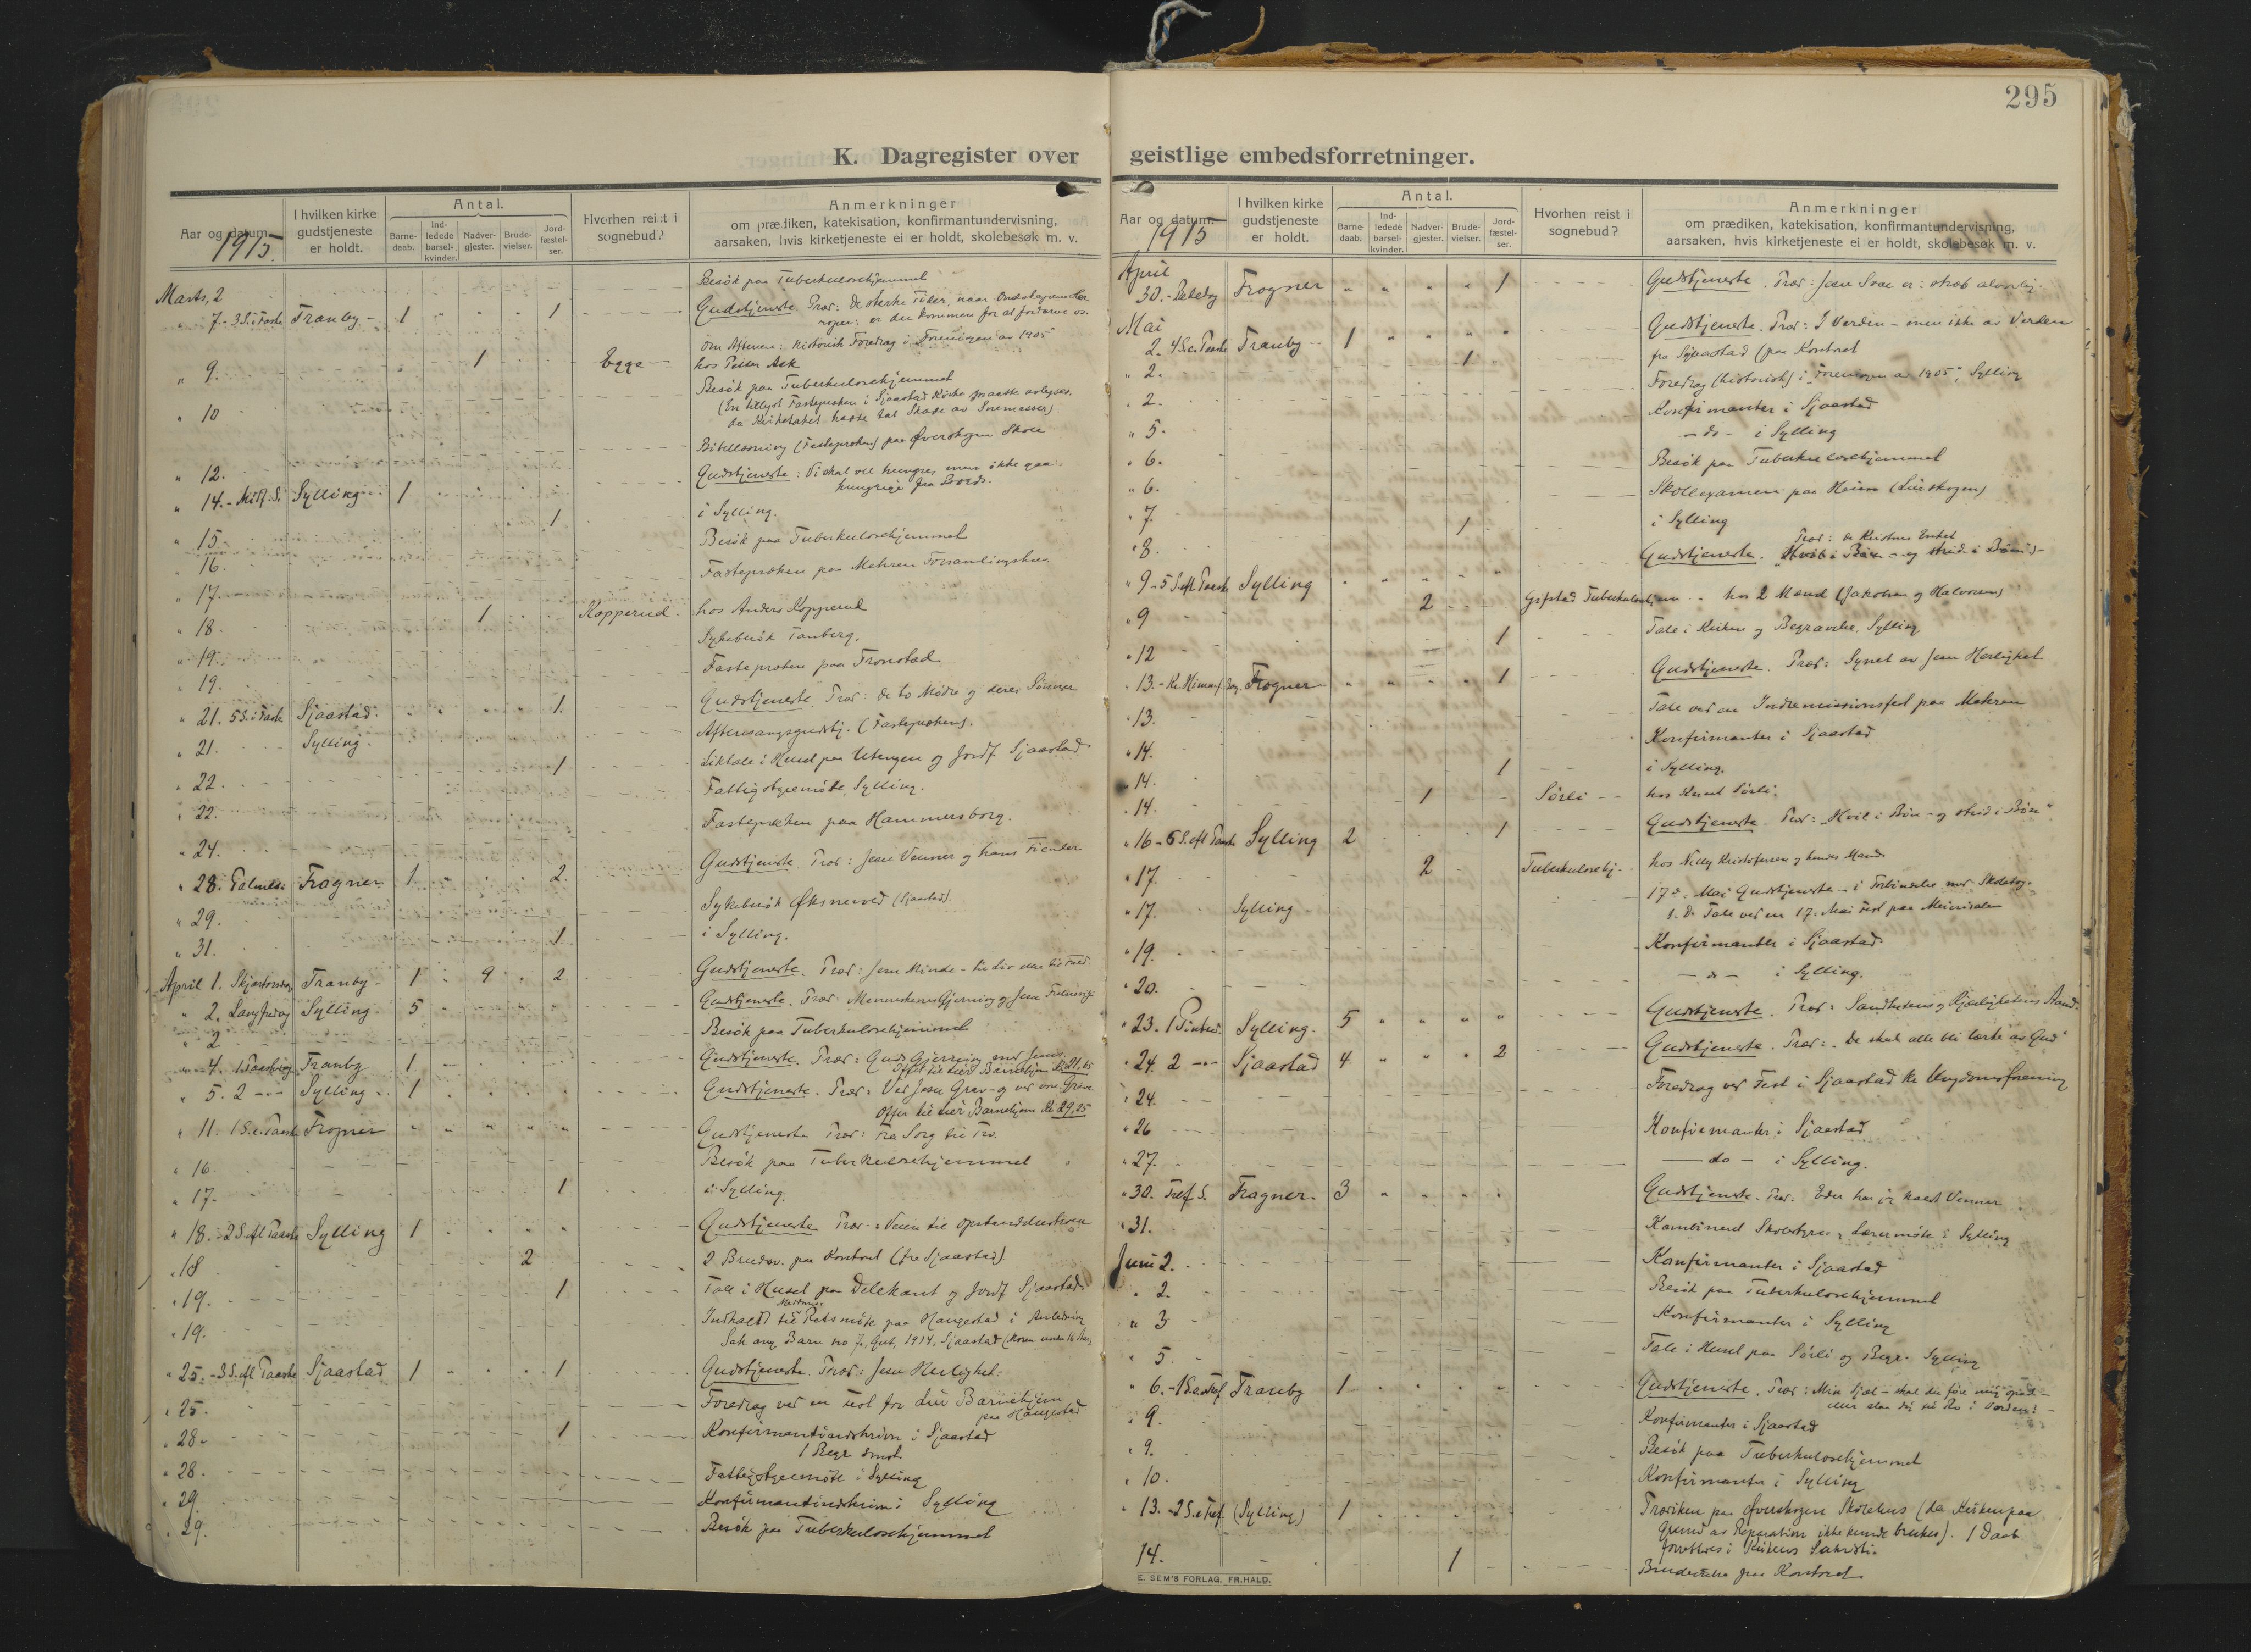 295
K. Dagregister over geistlige embedsforretninger.
Aar og datum.
1915.
I hvilken kirke gudstjeneste er holdt.
Antal.
Barne-daab.
Ind-ledede barsel-kvinder.
Nadver-gjester.
Brude-vielser.
Jord-fæstel-ser.
Hvorhen reist i sognebud?
Anmerkninger
om prædiken, katekisation, konfirmantundervisning,
aarsaken, hvis kirketjeneste ei er holdt, skolebesøk m. v.
Marts, 2 Besök paa Tuberkulosehjemmet
" 7 - 3 S. i Faste Tranby - 1 1 Gudstjeneste. Præd: De sterke Tider, naar
er du kommen for at fordærve os.
Om Aftenen: historisk Foredrag i "Foreningen av 1905"
" 9. 1 Egge hos Peter Ask
" 10 Besök paa Tuberkulosehjemmet
(En tillyst Fastepræken i Sjaastad Kirke maatte avlyses,
da Kirketaket hadde tat Skade av Snemasser)
" 12. Bibellæsning (Fastepræken) paa Øverskogen Skole
" 14. - Midf. S. Sylling 1 Gudstjeneste: Vi skal vel hungre, men ikke gaa
hungrige fra Bords.
" 15 1 i Sylling.
" 16. Besök paa Tuberkulosehjemmet
" 17. Fastepræken paa Mehren Forsamlingshus
" 18. 1 Kopperud. hos Anders Kopperud
" 19. Sykebesök Tanberg.
" 19. Fastepræken paa Tronstad
" 21. 5 S. i Faste Sjaastad. 1. Gudstjeneste. Præd: de to Mödre og deres Sönner
" 21. Sylling. Aftensangsgudstj. (Fastepræken).
" 22. 1 Liktale i Huset paa Utengen og Jordf. Sjaastad
" 22. Fattigstyremöte, Sylling.
" 24. Fastepræken paa Hammersborg.
" 28. Palmes. Frogner 1. 2. Gudstjeneste. Præd: Jesu Venner og hans Fiender
" 29. Sykebesök Øksnevold (Sjaastad).
" 31. 1 i Sylling.
April 1. Skjærtorsdag Tranby - 1 9 2 Gudstjeneste. Præd: Jesu Minde - til Liv eller til Død.
" 2. Langfredag Sylling. 5 Gudstjeneste. Præd: Menneskenes Gjerning og Jesu
" 2 Besök paa Tuberkulosehjemmet
" 4. 1 Paaskedag Tranby 1 Gudstjeneste. Præd: Guds Gjerning med Jesus
Offer til Lier Barnehjem Kr 21,65
" 5. 2 - " - Sylling 1 Gudstjeneste. Præd: Ved Jesu Grav - og ved vore Grave
Offer til Lier Barnehjem Kr 29,25
" 11. 1 S. e. Paaske Frogner Gudstjeneste Præd: Fra Sorg til Tro.
" 16. Besök paa Tuberkulosehjemmet
" 17. 1 i Sylling.
" 18. - 2 S. eft Paaske Sylling 1 Gudstjeneste Præd: Veien til
" 18 2 2 Brudev. paa Kontoret (fra Sjaastad)
" 19. 1 Tale i Huset paa Delekant og Jordf. Sjaastad
" 19. Indkaldt til Retsmöte paa Haugestad i Anledning
Sak ang. Barn no 7, Gut, 1914, Sjaastad
" 25. - 3 S. eft Paaske Sjaastad 1 1 Gudstjeneste. Præd: Jesu Herlighet.
" 25. Foredrag ved en Fest for Lier Barnehjem
paa Haugestad
" 28. 1 Konfirmantindskrivn i Sjaastad
1 Begr. smst
" 28. Fattigstyremöte i Sylling
" 29. Konfirmantindskrivn i Sylling
" 29. Besök paa Tuberkulosehjemmet
Aar og datum.
1915
I hvilken kirke gudstjeneste er holdt.
Antal.
Barne-daab.
Ind-ledede barsel-kvinder.
Nadver-gjester.
Brude-vielser.
Jord-fæstel-ser.
Hvorhen reist i sognebud?
Anmerkninger
om prædiken, katekisation, konfirmantundervisning,
aarsaken, hvis kirketjeneste ei er holdt, skolebesøk m. v.
April
30. - Bededag Frogner 1 Gudstjeneste. Præd:
Mai
2. 4 S. e. Paaske Tranby - 1 Gudstjeneste. Præd: I Verden - men ikke av Verden
" 2. 1 fra Sjaastad (paa Kontoret
" 2. Foredrag (historisk) i "Foreningen av 1905", Sylling
" 5. Konfirmanter i Sjaastad
" 6. - do - i Sylling
" 6. Besök paa Tuberkulosehjemmet
" 7. Skoleexamen paa Heim (Lierskogen)
" 8. 1 i Sylling
" 9 - 5 S. eft Paaske Sylling Gudstjeneste.
" 9 2 Gifstad Tuberkulosehjem hos 2 Mænd (Jakobsen og Halvorsen)
" 12 1 Tale i Kirken og Begravelse, Sylling
" 13. - Kr. Himmelf. dag. Frogner 1 Gudstjeneste. Præd: Synet av Jesu Herlighet
" 13. Tale ved en Indremissionsfest paa Mehren
" 14. Konfirmanter i Sjaastad
" 14. 1 i Sylling.
" 14. 1 Sörli hos Knut Sörli.
" 16 - 6 S. eft Paaske Sylling 2 1 Gudstjeneste. Præd: "Hvil i Bön - og strid i Bön"
" 17. 2 Tuberkulosehj. hos Nilly Kristofersen og hendes Mand
" 17. Sylling 17de Mai Gudstjeneste - i Forbindelse med Skoletog.
s. D. Tale ved en 17. Mai Fest paa
" 19. Konfirmanter i Sjaastad
" 20. - do - i Sylling.
" 23. 1 Pinsed. Sylling. 5 Gudstjeneste. Præd: Sandhetens og Kjærlighetens Aand.
" 24. 2 - " - Sjaastad 4 2 Gudstjeneste. Præd: "De skal alle bli lærte av Gud"
" 24. Foredrag ved Fest i Sjaastad kr. Ungdomsforening
" 26 Konfirmanter i Sjaastad
" 27. - do - i Sylling.
" 30. Tref. S. Frogner. 3 Gudstjeneste. Præd: Eder har jeg kaldt Venner
" 31. Kombinert Skolestyre- og Lærermöte i Sylling
Juni 2. Konfirmanter i Sjaastad
" 2. Besök paa Tuberkulosehjemmet
" 3 Konfirmanter i Sylling
" 5. Tale i Huset paa Sörli og Begr. Sylling
" 6. - 1 S. e. Tref. Tranby 1 Gudstjeneste. Præd: Min Sjæl - skal du före mig
eller slaa dig til Ro i Verden?
" 9. Konfirmanter i Sjaastad
" 9. Besök paa Tuberkulosehjemmet
" 10. Konfirmanter i Sylling
" 13. - 2 S. e Tref. (Sylling) 1 Prædiken paa Øverskogen Skolehus (da Kirken paa
Grund av Reparation ikke kunde brukes). 1 Daab
forrettes i Kirkens Sakristi.
14. 1 Brudevielse paa Kontoret
E. SEM'S FORLAG, FR.HALD.